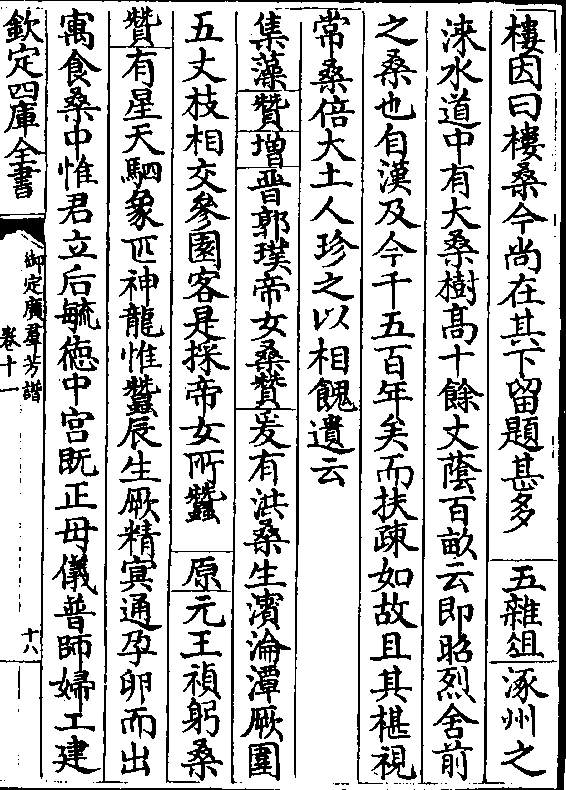 樓因曰樓桑今尚在其下留題甚多　五雜俎　涿州之
淶水道中有大桑樹髙十餘丈蔭百畝云即昭烈舍前
之桑也自漢及今千五百年矣而扶疎如故且其椹視
常桑倍大土人珍之以相餽遺云
集藻贊增晉郭璞帝女桑贊爰有洪桑生濱淪潭厥圍
五丈枝相交參園客是採帝女所蠶　原元王禎躬桑
贊有星天駟象匹神龍惟蠶辰生厥精㝠通孕卵而出
寓食桑中惟君立后毓徳中宫既正母儀普師婦工建
欽定四庫全書
御定廣羣芳譜
卷十一
十六